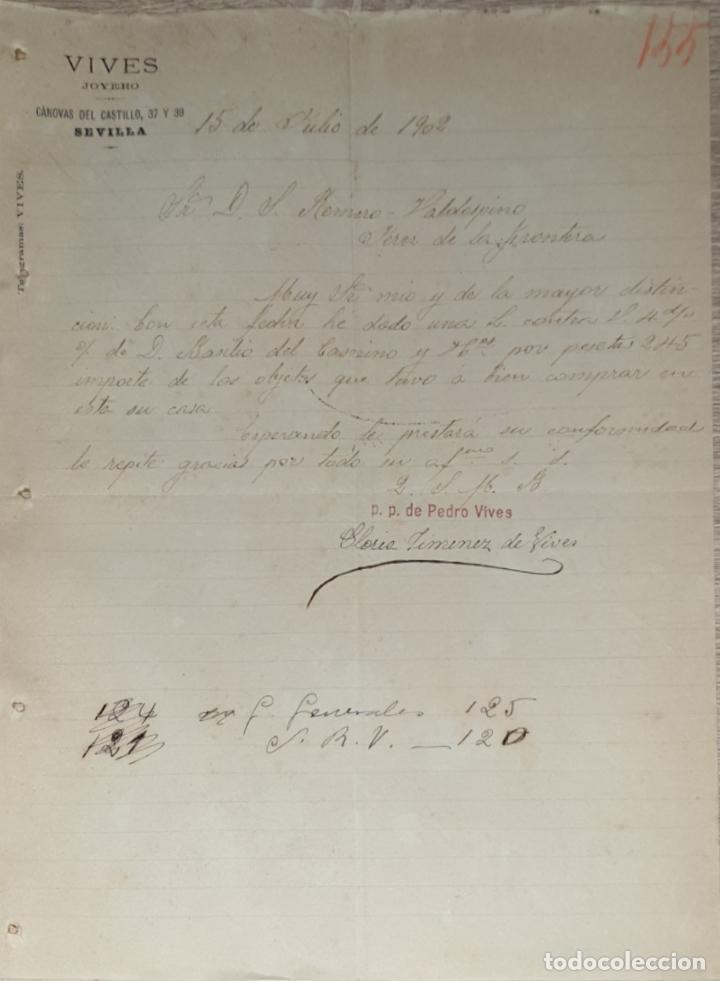 155
VIVES
JOYERO
CÁNOVAS DEL CASTILLO, 37 Y 39
SEVILLA
Telegramas: VIVES.
15 de Julio de 1902
Sr. D. S. Romero-Valdespino
Jerez de la Frontera
Muy Sr mio y de la mayor distin-
cion: Con esta fecha he dado una L. contra V. 4 d/v
o/ de D. del y Hno por pesetas 245
importe de los objetos que tuvo á bien comprar en
esta su casa
Esperando le prestará su conformidad
le repite gracias por todo su afmo s. s.
Q. S. M. B
p. p. de Pedro Vives
Gloria Jimenez de Vives
124 G. Generales 125
121 S. R. V. — 120
todocoleccion.net